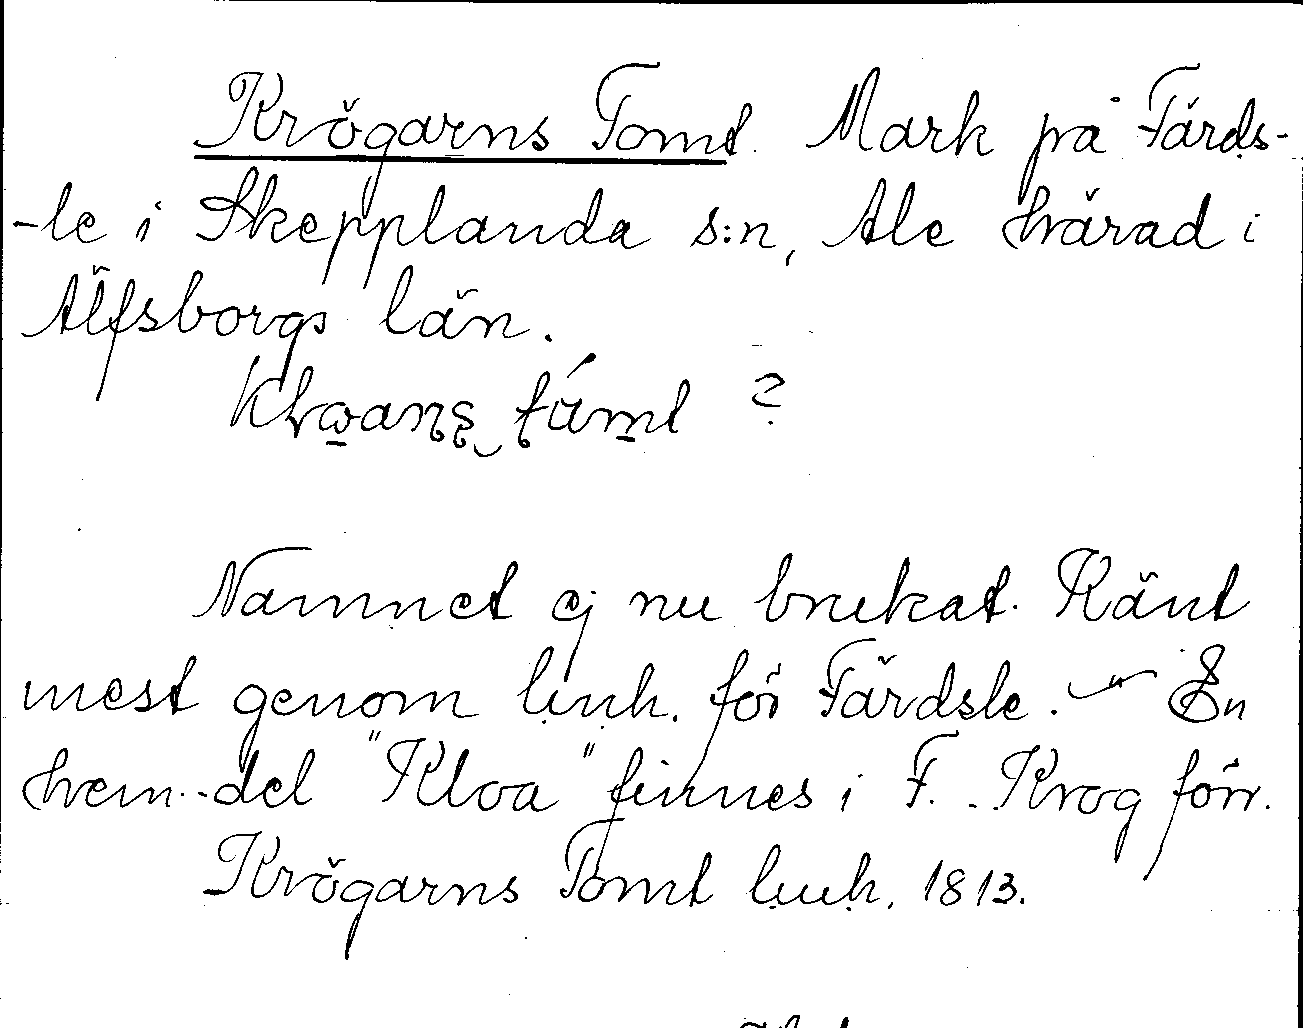 Krögarns Tomt. Mark på Färds-
-le i Skepplanda s:n, Ale härad i
Älfsborgs län.
?
Namnet ej nu brukat. Känt
mest genom luuh. för Färdsle. — En
hem.-del "Kloa" finnes i F. - Krog förr.
Krögarns Tomt luuh. 1813.